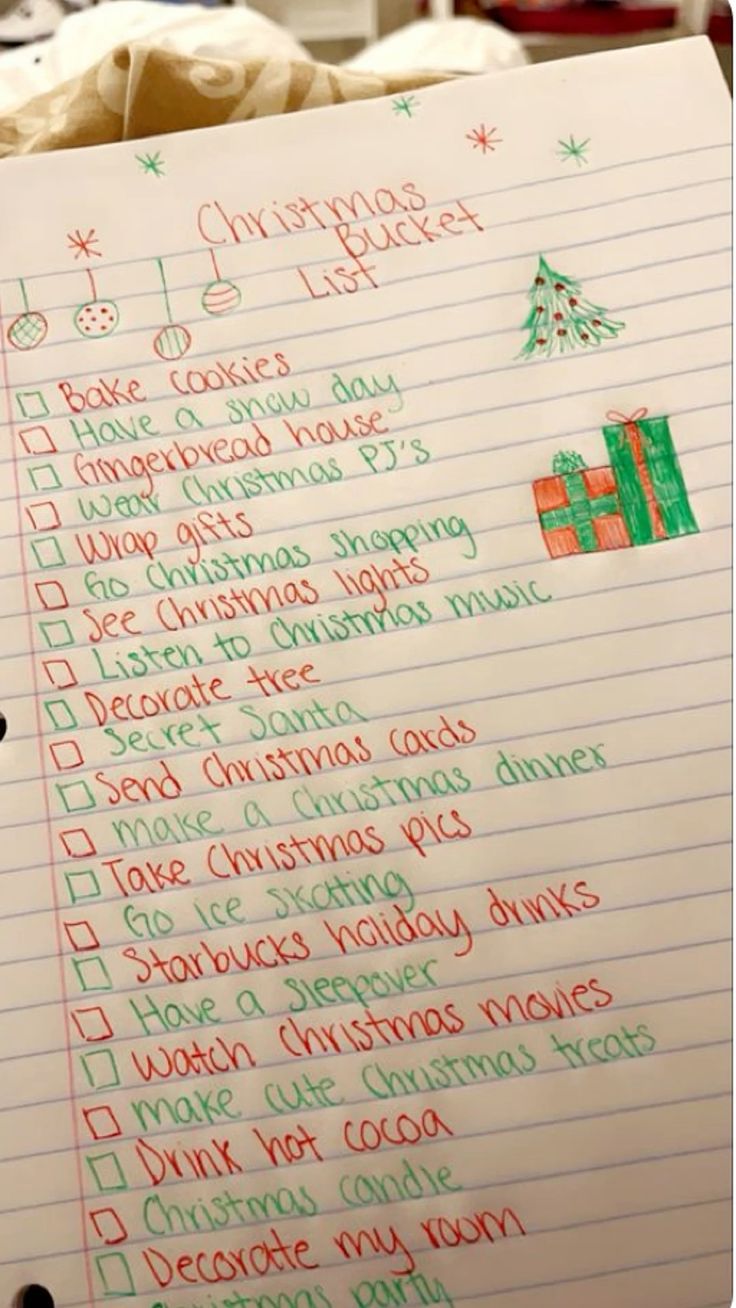 Christmas
Bucket
List
Bake cookies
Have a snow day
Gingerbread house
Wear Christmas PJ's
Wrap gifts
Go Christmas shopping
See Christmas lights
Listen to Christmas music
Decorate tree
Secret Santa
Send Christmas cards
make a Christmas dinner
Take Christmas pics
Go ice skating
Starbucks holiday drinks
Have a sleepover
Watch Christmas movies
make cute Christmas treats
Drink hot cocoa
Christmas candle
Decorate my room
Christmas party